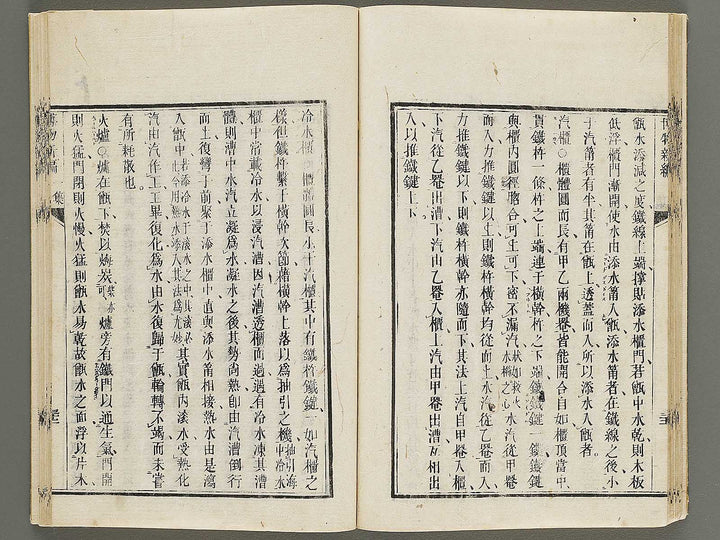 博物新編
甑水添減之度鐵線上端撐貼添水櫃門若甑中水乾則木板
低浮櫃門漸開使水由添水筩入甑添水筩者在鐵線之後小
于汽筩者有半其筩在甑上透蓋而入所以添水入甑者
汽櫃○櫃體圓而長有甲乙兩機罨皆能開合自如櫃頂當中
貫鐵杵一條杵之上端連于橫幹杵之下端鐵鐵鍵一鐵鐵鍵
與櫃內圓徑脗合可上可下密不漏汽水汽從甲罨
而入力推鐵鍵以上則鐵杵橫幹均從而上水汽從乙罨而入
力推鐵鍵以下則鐵杵橫幹亦隨而下其法上汽自甲罨入櫃
下汽從乙罨出漕下汽由乙罨入櫃上汽由甲罨出漕互相出
入以推鐵鍵上下
冷水櫃○櫃體圓長小于汽櫃其中有鐵杵鐵鍵一如汽櫃之
樣但鐵杵繫于橫幹次節藉橫幹上落以為抽引之機
櫃中常載冷水以浸汽漕因汽漕透櫃而過遇有冷水凍其漕
體則漕中水汽立凝為水凝水之後其勢尚熱卽由汽漕倒行
而上復彎于前聚于添水櫃中直與添水筩相接熱水由是瀉
入甑中其實甑內滾水受熱化
汽由汽作工工畢復化為水由水復歸于甑輪轉不竭而未嘗
有所耗散也
火爐○爐在甑下焚以煤炭可爐旁有鐵門以通生氣門開
則火猛門閉則火慢火猛則甑水易乾故甑水之面浮以片木